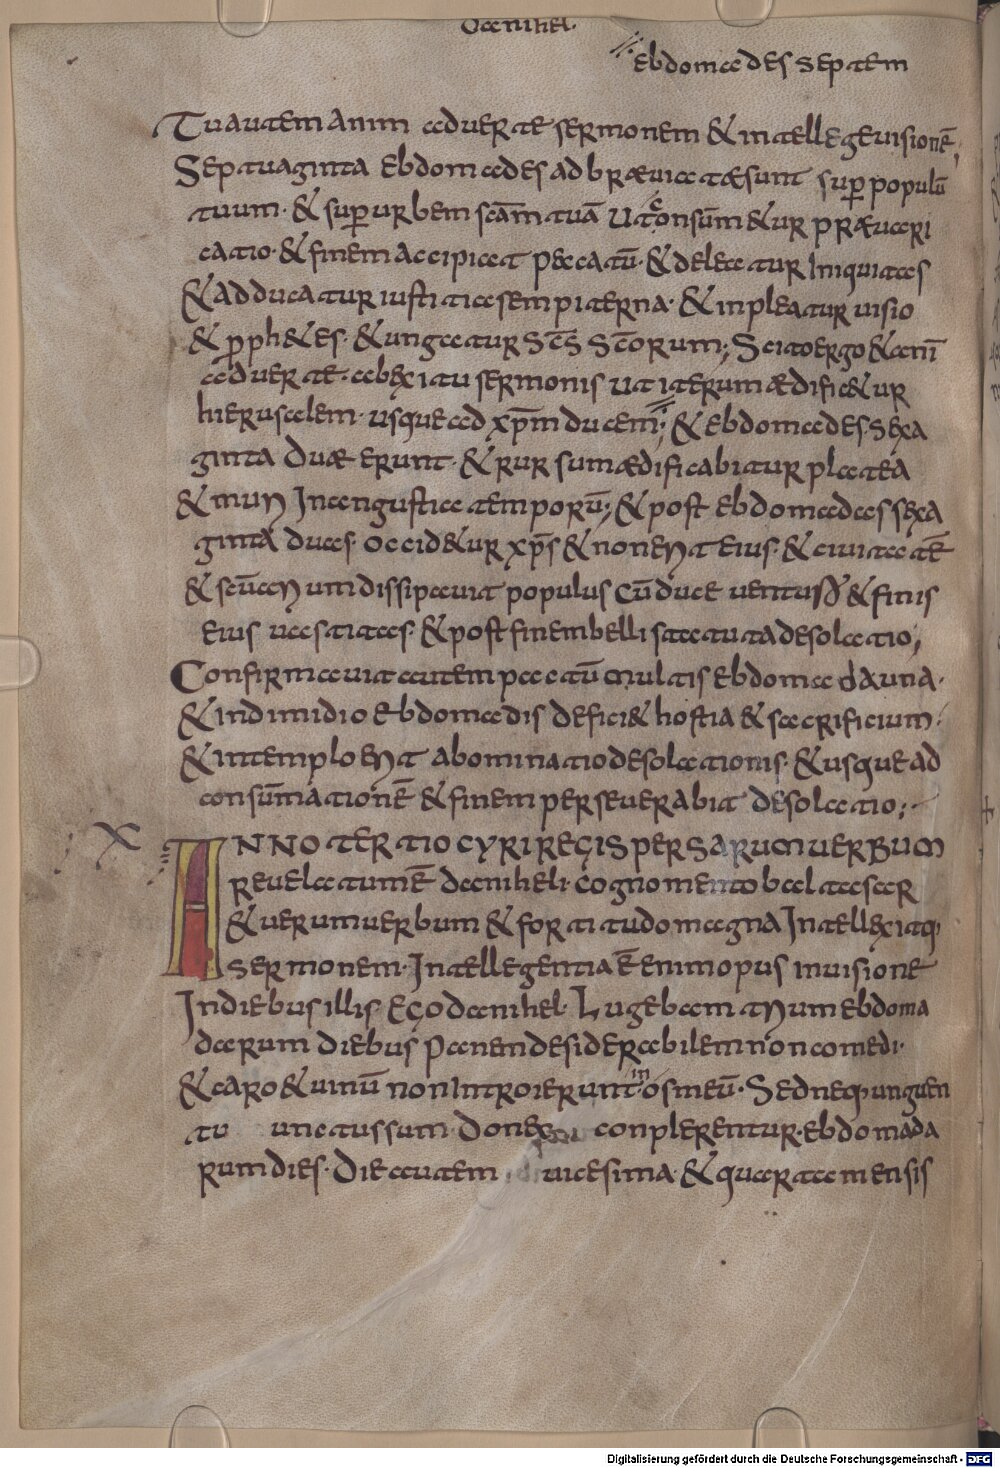 Danihel·
ebdomades septem
Tu autem anim aduerte sermonem & intellege uisionē,
Septuaginta ebdomades adbræuiatæ sunt sup̱ populū
tuum· & sup̱ urbem sc̄am tuā ut consūm&ur præuari
catio· & finem accipiat peccatū· & deleatur iniquitas
& adducatur iustitia sempiterna· & inpleatur uisio
& p̱ph&es· & ungatur sc̄s sc̄orum; Scito ergo & anī
aduerte· ab exitu sermonis ut iterum ædific&ur
hierusalem· usque ad xp̄m ducem; & ebdomades sexa
ginta duæ erunt· & rursum ædificabitur platea
& muri In angustia temporū; & post ebdomades sexa
ginta duas· occid&ur xp̄s & non erit eius· & ciuitatē
& sc̄uarium dissipauit populus cū duce uenturo & finis
eius uastitas· & post finem belli statuta desolatio;
Confirmauit autem pactū multis ebdomada una·
& in dimidio ebdomadis defici& hostia & sacrificium·
& in templo erit abominatio desolationis· & usque ad
consūmationē & finem perseuerabit desolatio;
X
ANNO TERTIO CYRI REGIS PERSARUM UERBUM
reuelatum ē daniheli· cognomento baltasar
& uerum uerbum & fortitudo magna Intellexitq·
sermonem· Intellegentia ē enim opus in uisione
In diebus illis ego danihel· Lugebam trium ebdoma
darum diebus panem desiderabilem non comedi·
& caro & uinū non introierunt in os meū· Sed neq· unguen
tu unctus sum· Donec conplerentur· ebdomada
rum dies· Die autem uicesima· & quarta mensis
Digitalisierung gefördert durch die Deutsche Forschungsgemeinschaft - DFG